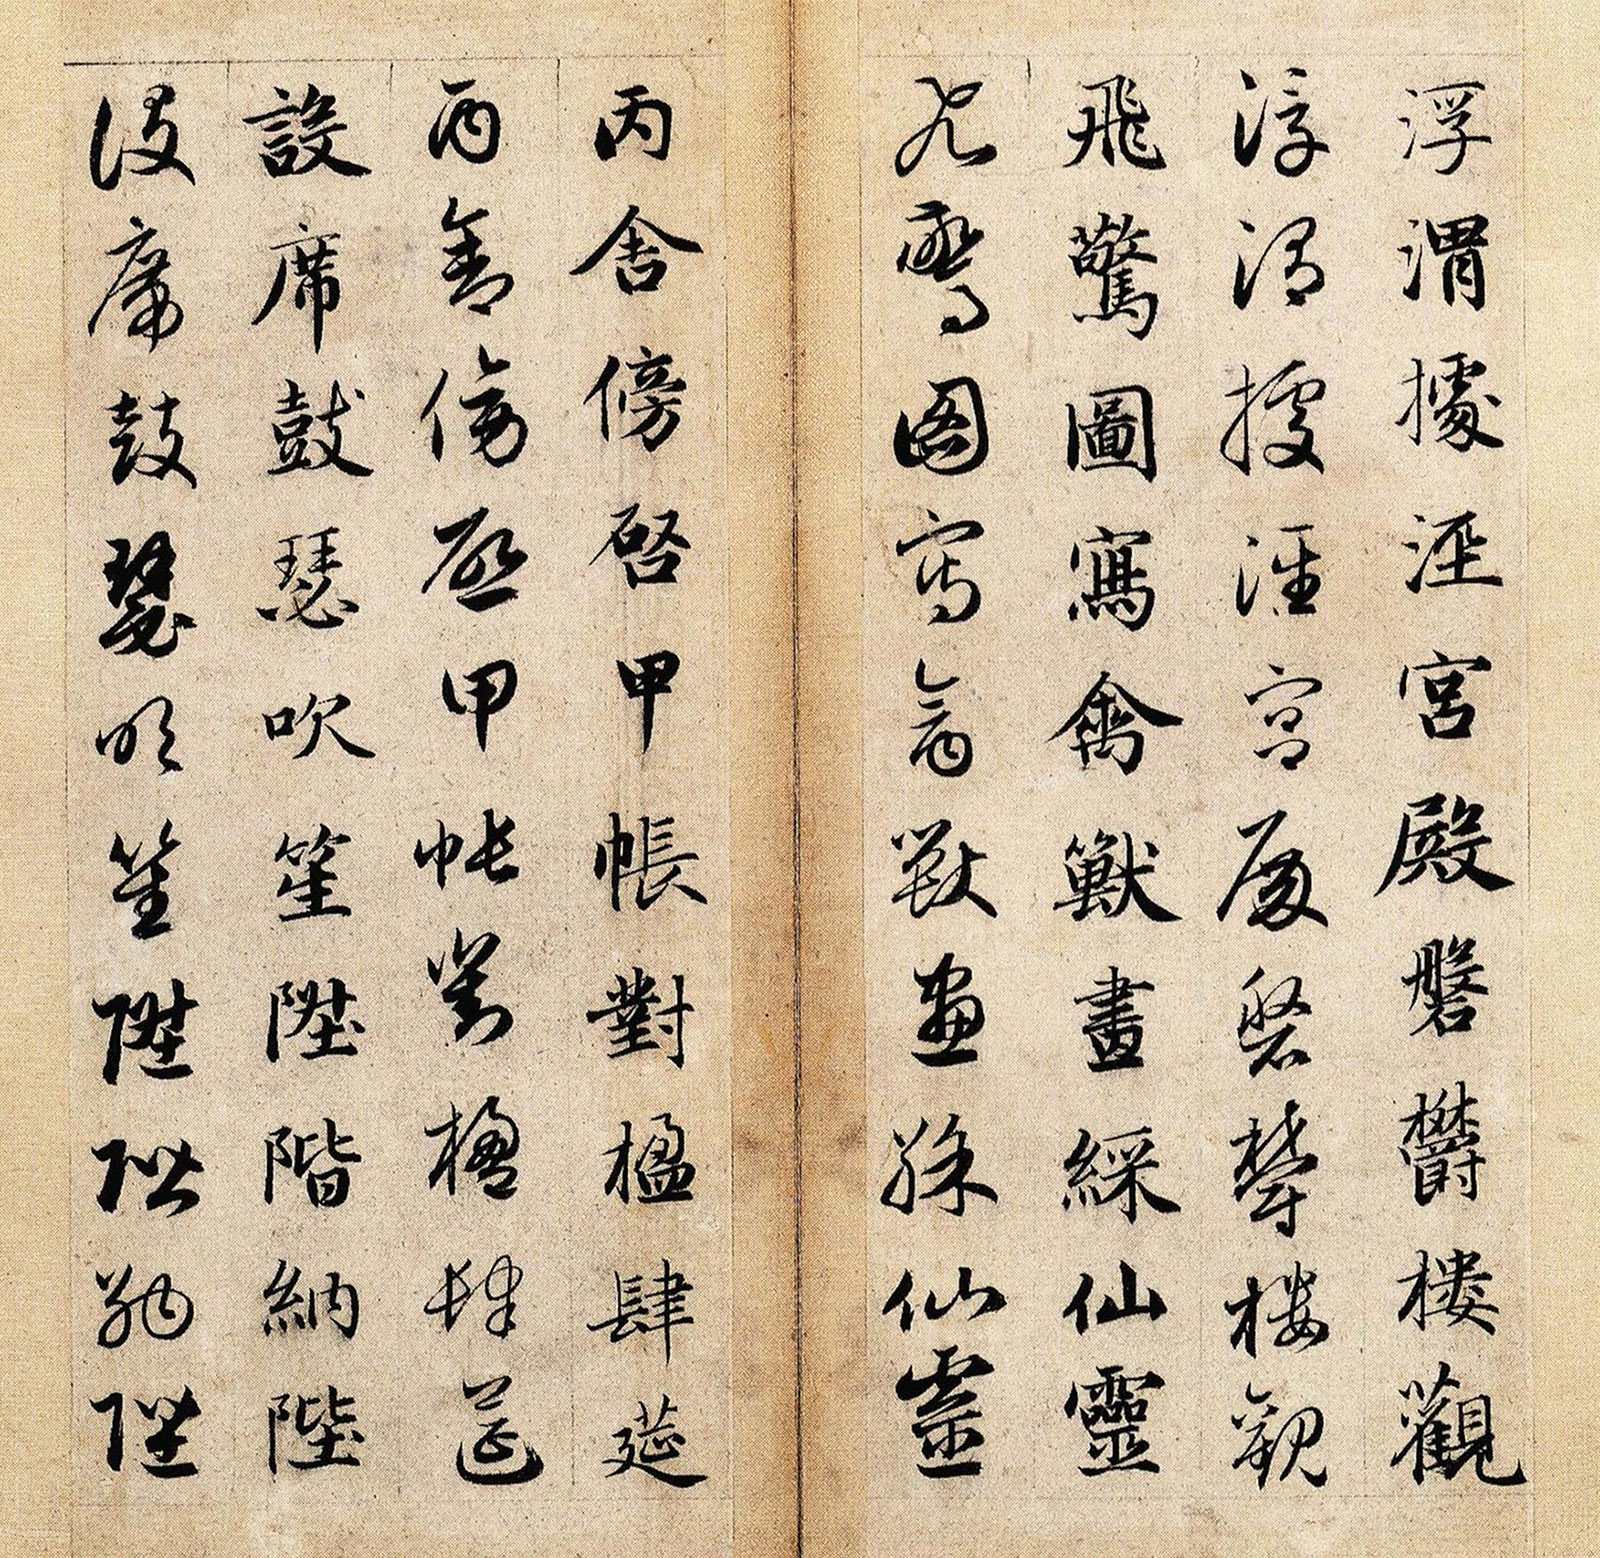 浮渭據涇宮殿磐欝樓觀
浮渭據涇宮殿磐欝樓觀
飛驚圖寫禽獸畫綵仙靈
飛驚圖寫禽獸畫綵仙靈
丙舍傍啓甲帳對楹肆莚
丙舍傍啓甲帳對楹肆莚
設席鼓瑟吹笙陞階納陛
設席鼓瑟吹笙陞階納陛